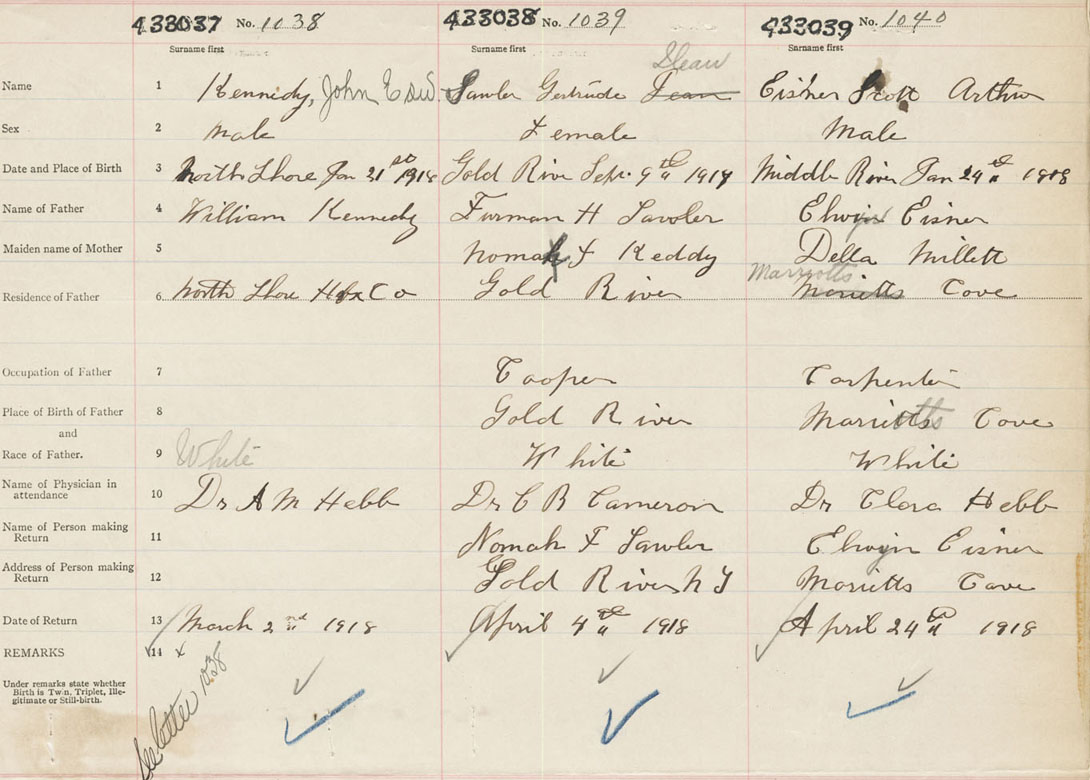 433037 No. 1038 433038 No. 1039 433039 No. 1040
Surname first Surname first Surname first
Dean
Name 1 Kennedy, John Edw. Lawler Gertrude Jean Eisner Scott Arthur
Sex 2 Male Female Male
Date and Place of Birth 3 North Shore Jan 21st 1918 Gold River Sept. 9th 1917 Middle River Jan 24th 1918
Name of Father 4 William Kennedy Furman H Lawler Elwyn Eisner
Maiden name of Mother 5 Nomah F Keddy Della Millett
Marriotts
Residence of Father 6 North Shore Hfx Co Gold River Marietts Cove
Occupation of Father 7 Cooper Carpenter
Place of Birth of Father 8 Gold River Marriotts Cove
and
Race of Father. 9 White White White
Name of Physician in attendance 10 Dr A M Hebb Dr C B Cameron Dr Clara Hebb
Name of Person making Return 11 Nomah F Lawler Elwyn Eisner
Address of Person making Return 12 Gold River N S Marietts Cove
Date of Return 13 March 2nd 1918 April 4th 1918 April 24th 1918
REMARKS 14 x
Under remarks state whether
Birth is Twin, Triplet, Ille-
gitimate or Still-birth.
See letter 1038